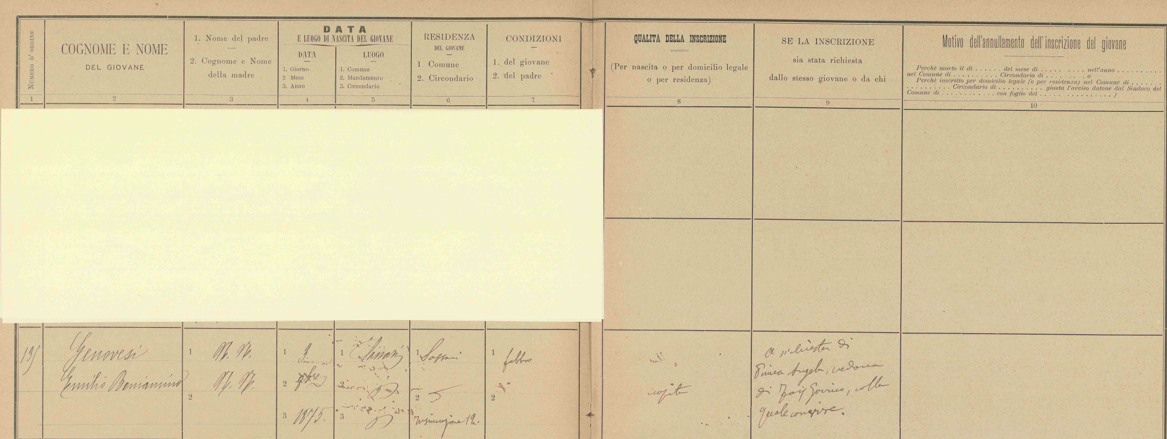 NUMERO D'ORDINE
COGNOME E NOME
DEL GIOVANE
1. Nome del padre
2. Cognome e Nome
della madre
DATA
E LUOGO DI NASCITA DEL GIOVANE
DATA
1. Giorno
2. Mese
3. Anno
LUOGO
1. Comune
2. Mandamento
3. Circondario
RESIDENZA
DEL GIOVANE
1 Comune
2. Circondario
CONDIZIONI
1. del giovane
2. del padre
QUALITÀ DELLA INSCRIZIONE
(Per nascita o per domicilio legale
o per residenza)
SE LA INSCRIZIONE
sia stata richiesta
dallo stesso giovane o da chi
Motivo dell'annullamento dell'inscrizione del giovane
Perchè morto il dì . . . . . . del mese di . . . . . . . . . nell'anno . . . . . . . .
nel Comune di . . . . . . . . . Circondario di . . . . . . . . . o
Perchè inscritto per domicilio legale (o per residenza) nel Comune di . . . .
. . . . . . . . . Circondario di . . . . . . . . . giusta l'avviso datone dal Sindaco del
Comune di . . . . . . . . . . . con foglio del . . . . . . . . . . . )
1 2 3 4 5 6 7 8 9 10
Genovesi
Emilio Beniamino
1 N. N.
N. N.
2
1 2
2
3 1875.
1
3
1 Sassari
2
1 fabbro
2
A richiesta di
Angela, vedova
di colla
quale convive.